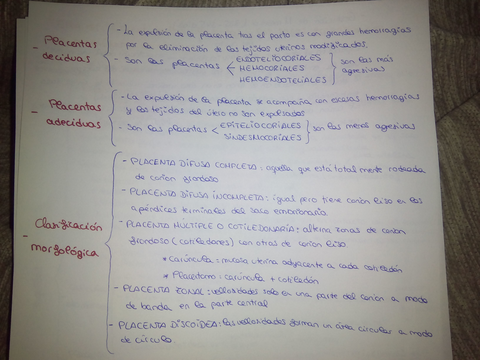 - Placentas deciduas
- La expulsión de la placenta tras el parto es con grandes hemorragias
por la eliminación de los tejidos uterinos modificados.
- Son las placentas ENDOTELIOCORIALES
HEMOCORIALES
HEMOENDOTELIALES
son las más agresivas
- Placentas adeciduas
- La expulsión de la placenta se acompaña con escasas hemorragias
y los tejidos del útero no son expulsados
- Son las placentas EPITELIOCORIALES
SINDESMOCORIALES
son las menos agresivas
- Clasificación morfológica
- PLACENTA DIFUSA COMPLETA: aquella que está totalmente rodeada
de corion frondoso
- PLACENTA DIFUSA INCOMPLETA: igual pero tiene corion liso en los
apéndices terminales del saco embrionaria.
- PLACENTA MÚLTIPLE O COTILEDONARIA: alterna zonas de corion
frondoso (cotiledones) con otras de corion liso
* carúncula: mucosa uterina adyacente a cada cotiledón
* Placentomo: carúncula + cotiledón
- PLACENTA ZONAL: vellosidades solo en una parte del corion a modo
de banda en la parte central
- PLACENTA DISCOIDEA: las vellosidades forman un área circular a modo
de círculo